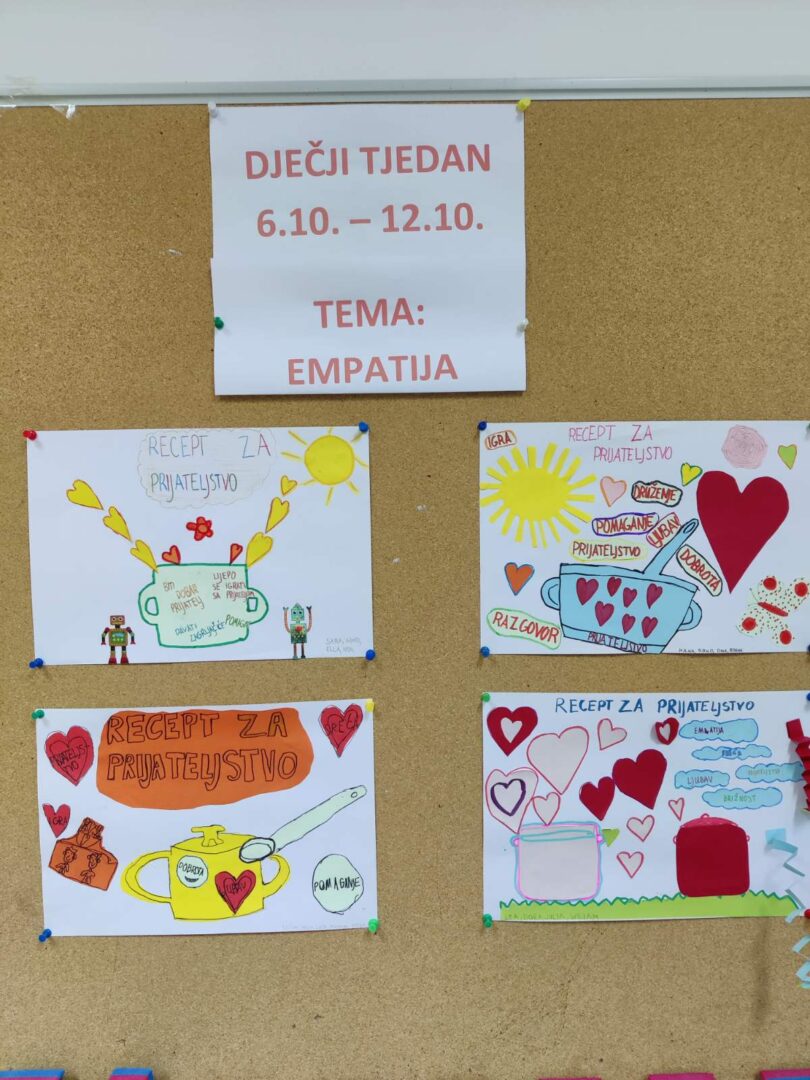 DJEČJI TJEDAN
6.10. – 12.10.
TEMA:
EMPATIJA
RECEPT ZA
PRIJATELJSTVO
BITI
DOBAR
PRIJATELJ
LIJEPO
SE IGRATI
SA PRIJATELJIMA
DAVATI
ZAGRLJAJČIĆE
IGRA
RECEPT ZA
PRIJATELJSTVO
DRUŽENJE
POMAGANJE
LJUBAV
PRIJATELJSTVO
DOBROTA
RAZGOVOR
PRIJATELJSTVO
RECEPT ZA
PRIJATELJSTVO
SREĆA
IGRA
DOBROTA
LJUBAV
POMAGANJE
RECEPT ZA PRIJATELJSTVO
EMPATIJA
LJUBAV
BRIŽNOST